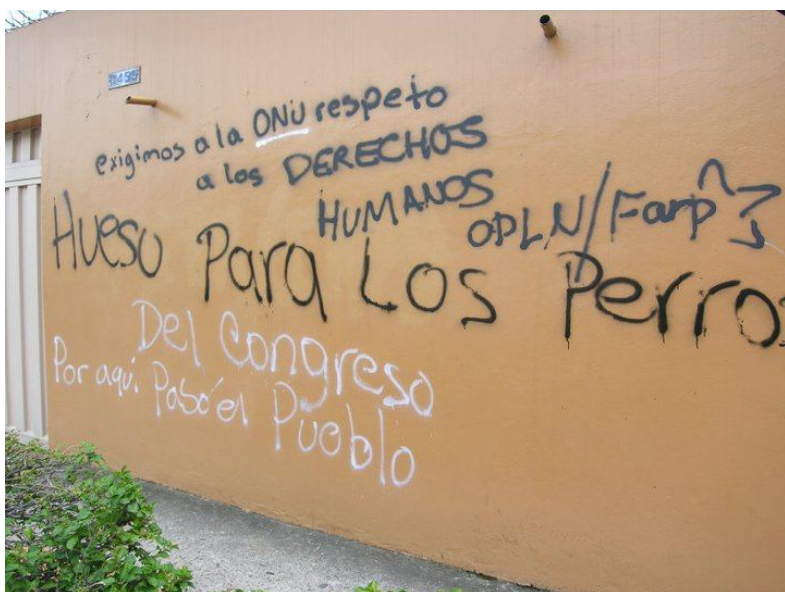 exigimos a la ONU respeto
a los DERECHOS
HUMANOS
OPLN/Farp
Hueso Para Los Perros
Del Congreso
Por aqui Pasó el
Pueblo